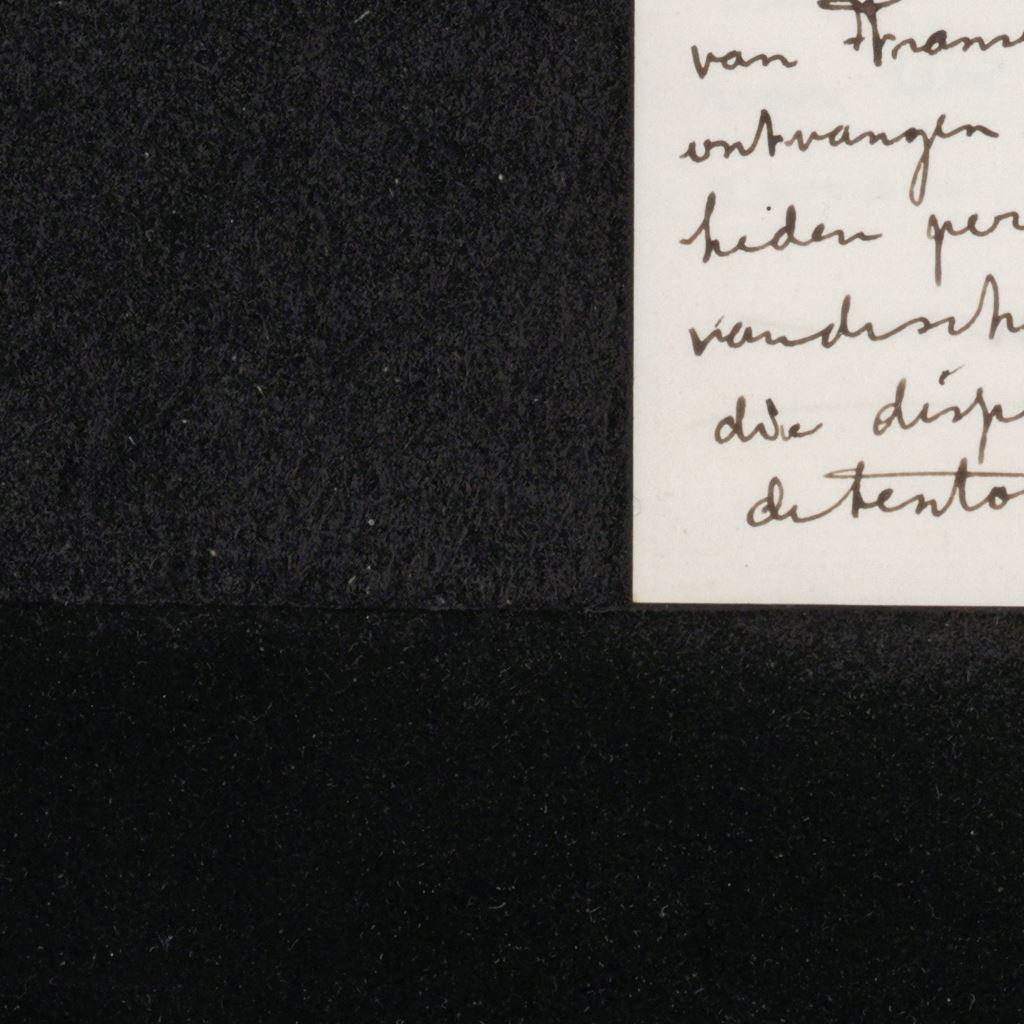 van Frans
ontvangen
heden per
vandisch
die disp
de tento